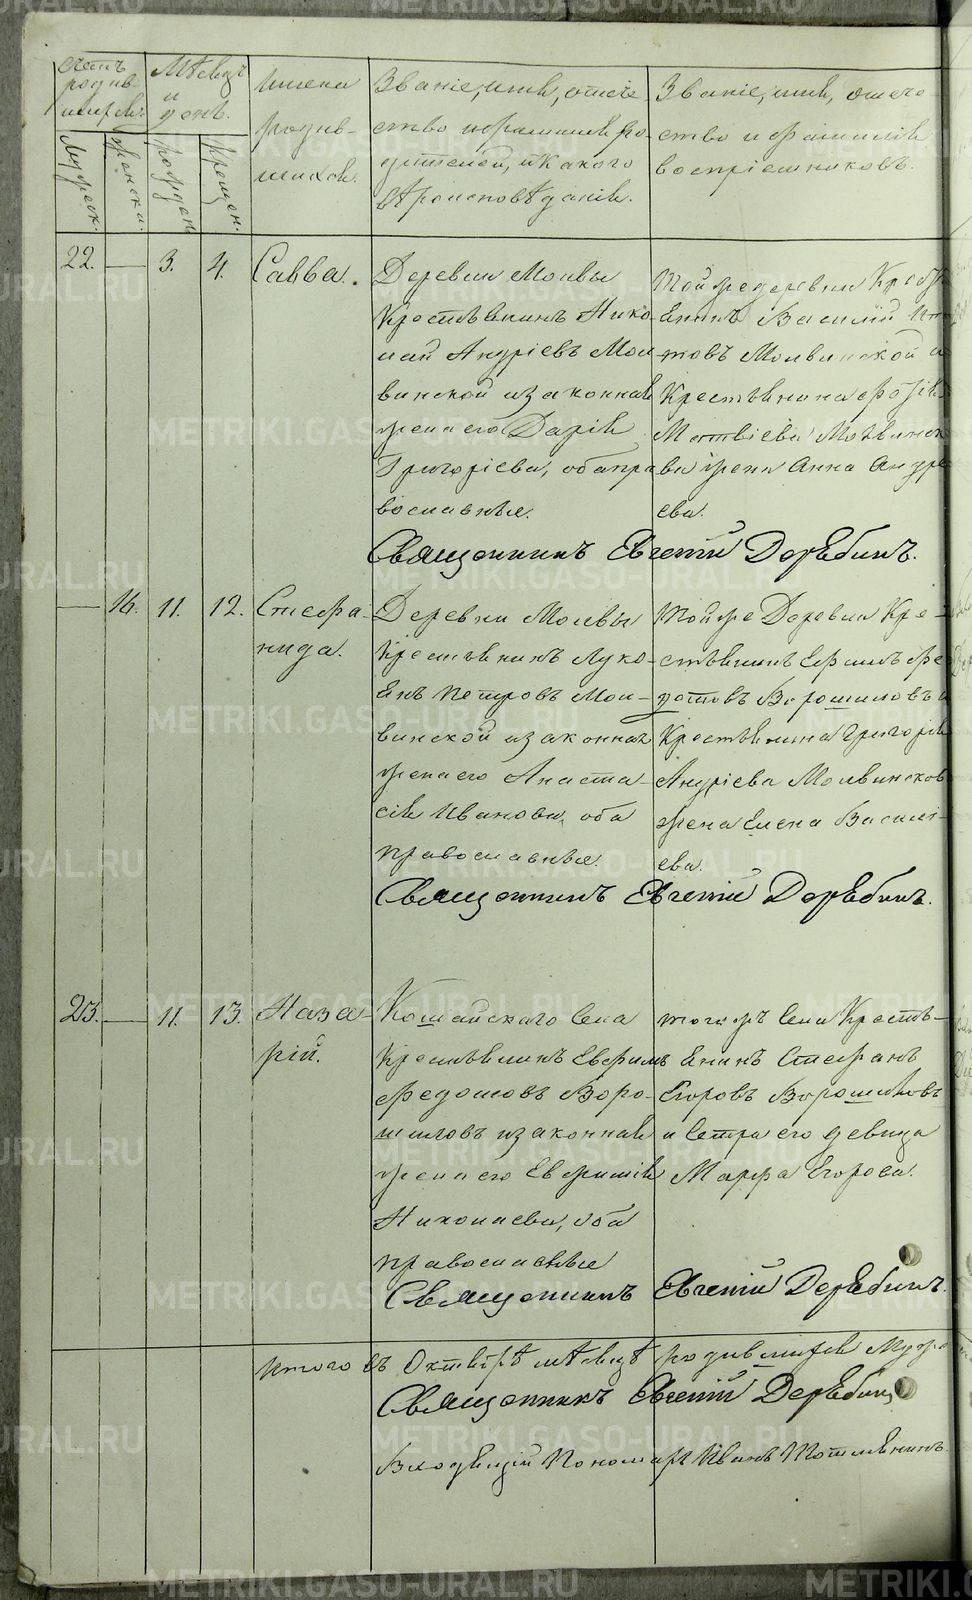 METRIKI.GASO-URAL.RU
Счетъ родив
шихся.
Мѣсяцъ
и
день.
Имена
родив-
шихся.
Званіе, имя, отече
ство и фамилія ро-
дителей, и какого
вѣроисповѣданія.
Званіе, имя, отече-
ство и фамилія
воспріемниковъ.
Мужеск.
Женска.
рожден
крещен.
22.
3.
4.
Савва.
Деревни Молвы
Крестьянинъ Нико-
лай Андріевъ Мол
винской и законная
жена его Дарія
Григоріева, оба пра
вославные.
Той же деревни Кресть
янинъ Василій
товъ Молвинской и
Крестьянина
Матвіева Молвинск
ва жена Анна Андре
ева.
Священникъ Евгеній Дерябинъ.
16.
11.
12.
Стефа-
нида.
Деревни Молвы
Крестьянинъ Луко-
янъ Петровъ Мол-
винской и законная
жена его Анаста-
сія Иванова, оба
православные.
Той же Деревни Кре-
стьянинъ Ефимъ Фе
дотовъ Ворошиловъ и
Крестьянина Григорія
Андріева Молвинсков
жена Елена Василі-
ева.
Священникъ Евгеній Дерябинъ.
23.
11.
13.
Наза-
рій.
Кошайскаго Села
Крестьянинъ Евфимъ
Федотовъ Воро-
шиловъ и законная
жена его Евфимія
Николаева, оба
православные
того жъ Села Кресть-
янинъ Стефанъ
Егоровъ Ворошиловъ
и Сестра его девица
Марфа Егорова.
Священникъ Евгеній Дерябинъ.
Итого въ Октябрѣ мѣсяцѣ родившихся Муже
Священникъ Евгеній Дерябин
Пономарь Иванъ